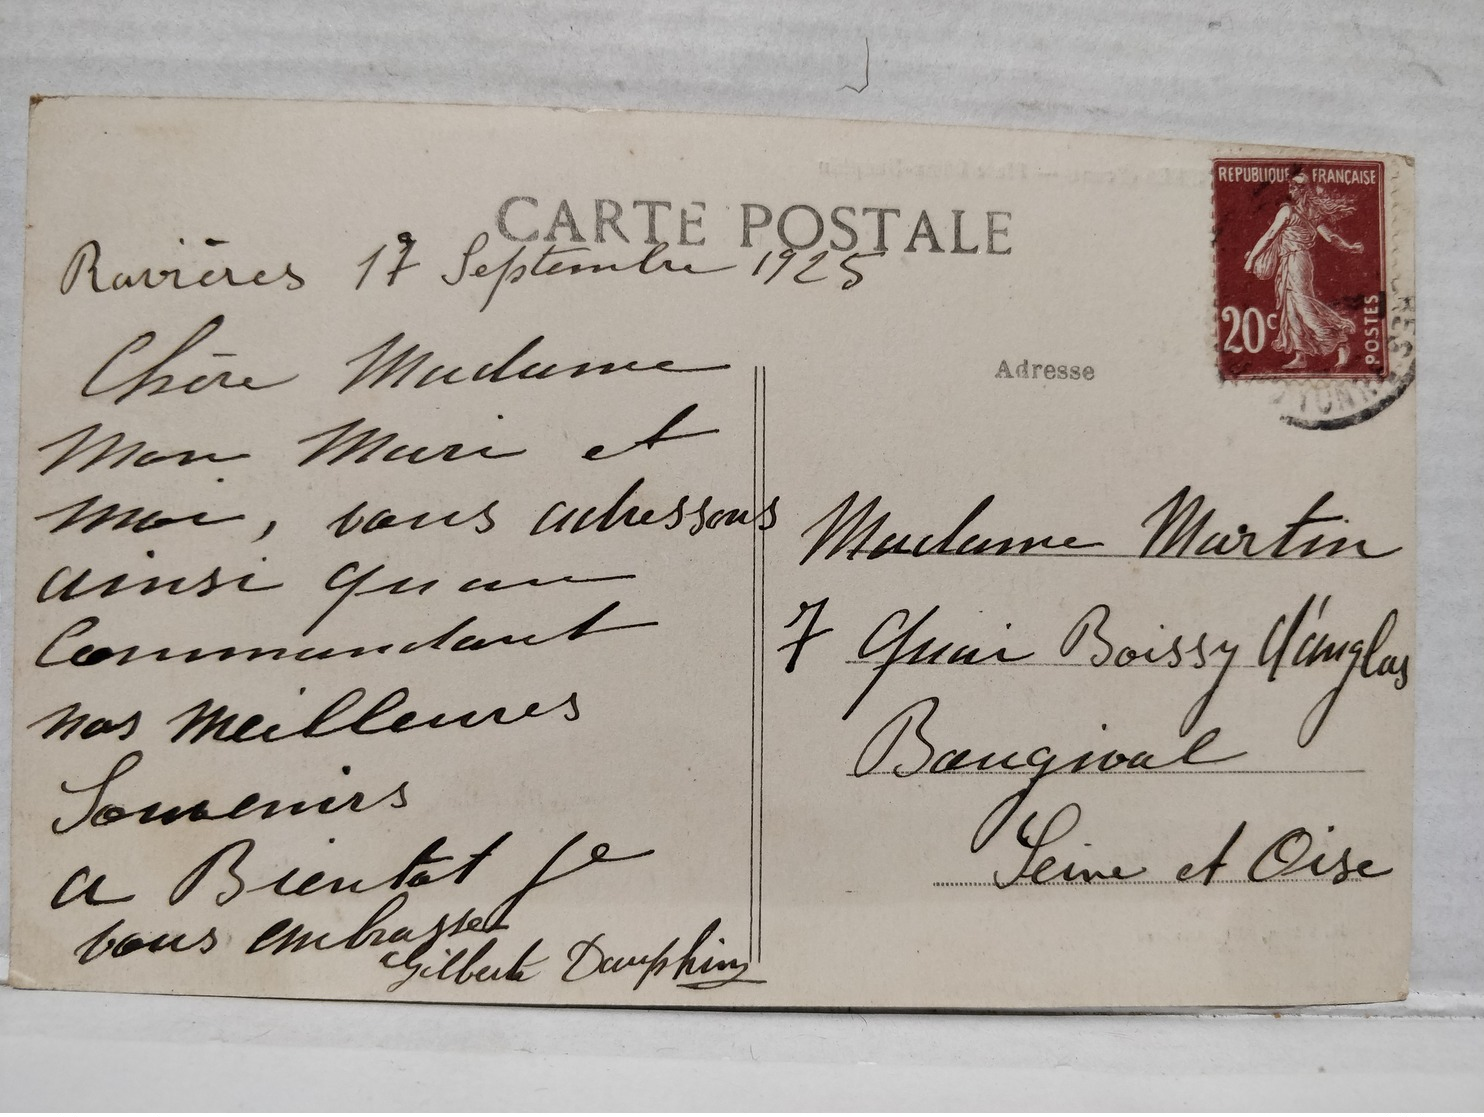 CARTE POSTALE
Ravières 17 Septembre 1925
Chère Madame
Mon Mari et
moi, vous adressons
ainsi quau
Commandant
nos meilleures
Souvenirs
a Bientot Je
vous embrasse
Gilberte Dauphin
REPUBLIQUE FRANÇAISE
20c
POSTES
YONNE
Adresse
Madame Martin
7 Quai Boissy d'anglas
Bougival
Seine et Oise